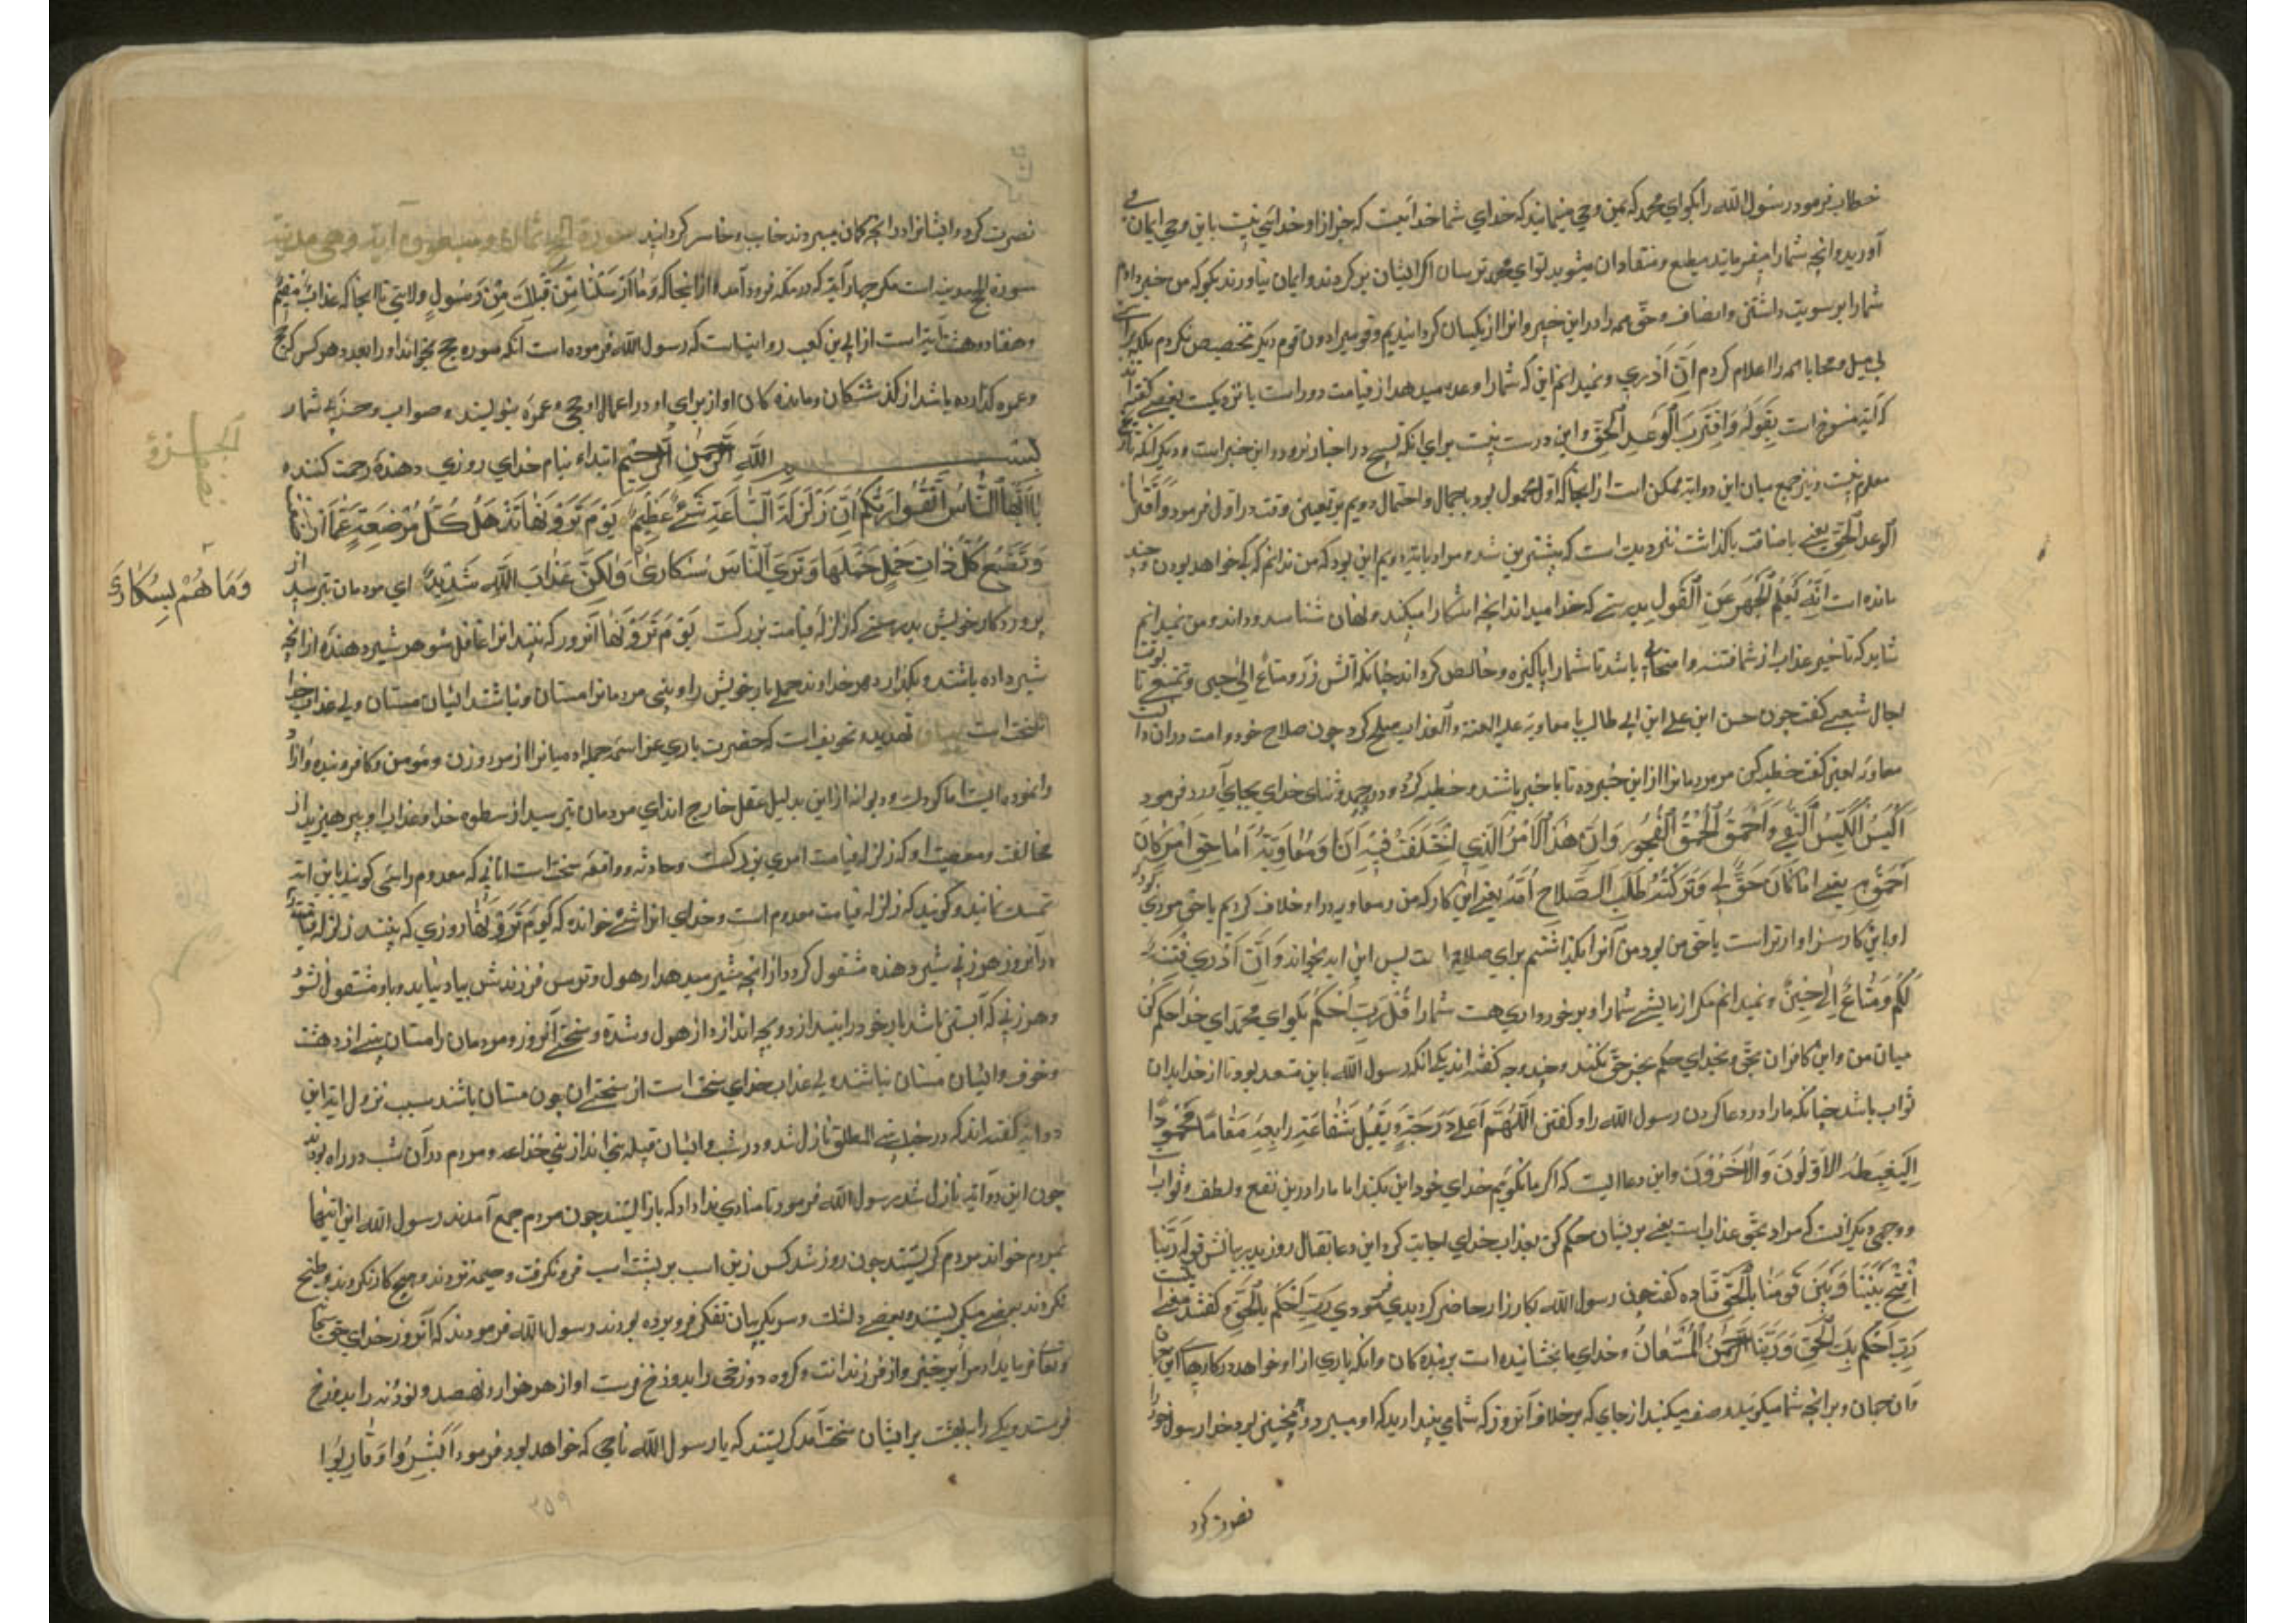 خطاب فرمود رسول الله را بگو ای محمد که بمن وحی مینمایند که خدای شما خدائیست که جز از او خدائی نیست باین وحی ایمان
آورید و انچه شما را میفرمایند مطیع و منقاد آن میشوید تو ای محمد بترسان اگر ایشان برگردند و ایمان نیاورند بگو که من خبر دادم
شما را بر سویت داشتن و انصاف و حق همه را در این خبر
بی میل و محابا همه را اعلام کردم اِن اَدْرِی و نمیدانم این که شما را وعده میدهد از قیامت دور است یا نزدیک بعضی گفته اند
که آیه منسوخ است بِقَولِهِ وَاقْتَرَبَ الْوَعْدُ الْحَقُّ و این درست نیست برای انکه نسخ در اخبار نرود و این خبر است و دیگر انکه تاریخ
معلوم نیست و نیز جمع میان این دو آیه ممکن است از انجا که اول محمول بود باجمال و احتمال دویم بر تعیین وقت در اول فرمود وَاقْتَرَبَ
الْوَعْدُ الْحَقُّ یعنی
مانده است اِنَّهُ یَعْلَمُ الْجَهْرَ مِنَ الْقَوْلِ بدرستی که خدا میداند انچه اشکارا میکنند و نهان شناسد و داند و من نمیدانم
شاید که تاخیر عذاب از شما فتنه و امتحانی باشد تا شما را پاکیزه و خالص گرداند چنانکه آتش زر و مَتَاعٌ اِلیٰ حِینٍ و تمتعی تا بوقت
اجال شعبی گفت چون حسن ابن علی ابن ابی طالب با معاویه علیه اللعنة والعذاب صلح کرد چون صلاح خود و امت در ان دانست
معاویه لعین گفت خطبه کن مر مردمانرا از این خبر ده تا با خبر باشند و خطبه کرد و در حمد و ثنای خدای بجای آورد فرمود
اَکْیَسُ الْکَیْسِ التُّقیٰ وَاَحْمَقُ الْحُمْقِ الْفُجُورُ وَاِنَّ هٰذَا الْاَمْرَ الَّذِی اخْتَلَفْتُ فِیهِ اَنَا وَمُعَاوِیَةُ اِمَّا حَقُّ امْرِءٍ کَانَ
اَحَقَّ بِهِ یعنی اِمَّا کَانَ حَقٌّ لِی وَتَرَکْتُهُ طَلَبَ الصَّلَاحِ اُمَّةً یعنی این کار که من و معاویه در او خلاف کردیم یا حق مردی بود
او باین کار سزاوارتر است یا حق من بود من آنرا بگذاشتم برای صلاح امت پس این ایه بخواند وَاِنْ اَدْرِی لَعَلَّهُ فِتْنَةٌ
لَکُمْ وَمَتَاعٌ اِلیٰ حِینٍ و نمیدانم مگر ازمایشی شما را و برخورداری هست شما را قُلْ رَبِّ احْکُمْ بگو ای محمد ای خدا حکم کن
میان من و این کافران بحق و بخدای حکم بجز حق نکند و چند وجه گفته اند یکی انکه رسول الله باین متعبد بود تا از خدا بدان
ثواب باشد چنانکه ما را در دعا کردن رسول الله را و گفتن اَللّٰهُمَّ اَعْلِ دَرَجَتَهُ وَتَقَبَّلْ شَفَاعَتَهُ وَابْعَثْهُ مَقَامًا مَحْمُودًا
یَغْبِطُهُ الْاَوَّلُونَ وَالْآخِرُونَ و این دعا ایست که اگر ما نگوئیم خدای خود این بکند اما ما را در این نفع و لطف و ثواب است
و وجهی دیگر آنست که مراد بحق عذاب است یعنی بر ایشان حکم کن بعذاب خدای اجابت کرد این دعا بقتال روز بدر بیانش قوله رَبَّنَا
افْتَحْ بَیْنَنَا وَبَیْنَ قَوْمِنَا بِالْحَقِّ قتاده گفت چون رسول الله بکارزار حاضر گردیدی فرمودی رَبِّ احْکُمْ بِالْحَقِّ
رَبِّ احْکُمْ بِالْحَقِّ وَرَبُّنَا الرَّحْمٰنُ الْمُسْتَعَانُ و خدای ما بخشاینده است بر بنده کان و انکه یاری از او خواهد در کارها این جهان
و آن جهان و بر انچه شما میگوئید و وصف میکنید از جای که بر خلاف آنروز که شما می پندارید که او میبرد و همچنین بود خدا رسول خود را
نصرت کرد
نصرت کرد و ایشانرا در انچه گمان میبردند خایب و خاسر گردانید سورة الحج ثمان و سبعون آیه و هی مدنیة
سورة الحج مدینه است مگر چهار آیه که در مکه فرود آمده از انجا که وَمَا اَرْسَلْنَا مِنْ قَبْلِکَ مِنْ رَسُولٍ وَلَا نَبِیٍّ تا انجا که عذاب مقیم
و هفتاد و هشت آیه است از ابی بن کعب روایت است که رسول الله فرموده است آنکه سوره حج بخواند او را بعدد هر کس که حج
و عمره گذارده باشد از گذشتگان و مانده کان او از برای او در اعمال او حج و عمره بنویسند و صواب و جزای شمار
بِسْمِ اللّٰهِ الرَّحْمٰنِ الرَّحِیمِ ابتداء بنام خدای روزی دهنده رحمت کننده
یَا اَیُّهَا النَّاسُ اتَّقُوا رَبَّکُمْ اِنَّ زَلْزَلَةَ السَّاعَةِ شَیْءٌ عَظِیمٌ یَوْمَ تَرَوْنَهَا تَذْهَلُ کُلُّ مُرْضِعَةٍ عَمَّا اَرْضَعَتْ
وَتَضَعُ کُلُّ ذَاتِ حَمْلٍ حَمْلَهَا وَتَرَی النَّاسَ سُکَارٰی وَلٰکِنَّ عَذَابَ اللّٰهِ شَدِیدٌ ای مردمان بترسید از
وَمَا هُمْ بِسُکَارٰی
پروردگار خویش بدرستی که زلزله قیامت بزرگست یَوْمَ تَرَوْنَهَا آنروز که بینید انرا غافل شود هر شیر دهنده از انچه
شیر داده باشند و بگذارد هر خداوند حملی بار خویش را و بینی مردمانرا مستان و نباشند ایشان مستان ولی عذاب خدا
سخت است تهدید و تخویف است که حضرت باری عز اسمه جمله ادمیانرا از مرد و زن و مومن و کافر و بنده و آزاد
از این بدلیل عقل خارج اند ای مردمان بترسید از سطوه خدا و عذاب او بپرهیزید از
مخالفت و معصیت او که زلزله قیامت امری بزرگست و حادثه و واقعه سخت است انانی که معدوم را شی گویند باین ایه
تمسک نمایند و گویند که زلزله قیامت معدوم است و خدای انرا شی خوانده که یَوْمَ تَرَوْنَهَا روزی که بینند زلزله قیامت
در آنروز هر زنی شیر دهنده مشغول گردد از انچه شیر میدهد از هول و ترس فرزندش بیاد نیاید و باو مشغول نشود
و هر زنی که آبستن باشد بار خود را بیندازد و بچه اندازد از هول و شدة و سختی آنروز و مردمان را مستان بینی از دهشت
و خوف و ایشان مستان نباشند ولی عذاب خدای سخت است از سختی ان چون مستان باشند سبب نزول ایه این
دو آیه گفته اند که در حرب بنی المطلق نازل شد و در شب و ایشان قبیله بنی اند از بنی خزاعه و مردم در آن شب در راه بودند
چون این دو آیه نازل شد رسول الله فرمود تا منادی ندا داد که باز ایستند چون مردم جمع آمدند رسول الله این ایتها
بمردم خواند مردم گریستند چون روز شد کس زین اسب بر پشت اسب فرو نگرفت و خیمه نزدند و هیچ کار نکردند و طبخ
نکردند بعضی میگریستند و بعضی دلتنگ و سر بگریبان تفکر فرو برده بودند رسول الله فرمودند که آنروز خدای حق سبحانه
و تعالی فرماید
فرستد و یکی را ببهشت بر ایشان سخت آمد گریستند که یا رسول الله ناجی که خواهد بود فرمود اَبْشِرُوا وَقَارِبُوا
۳۵۹